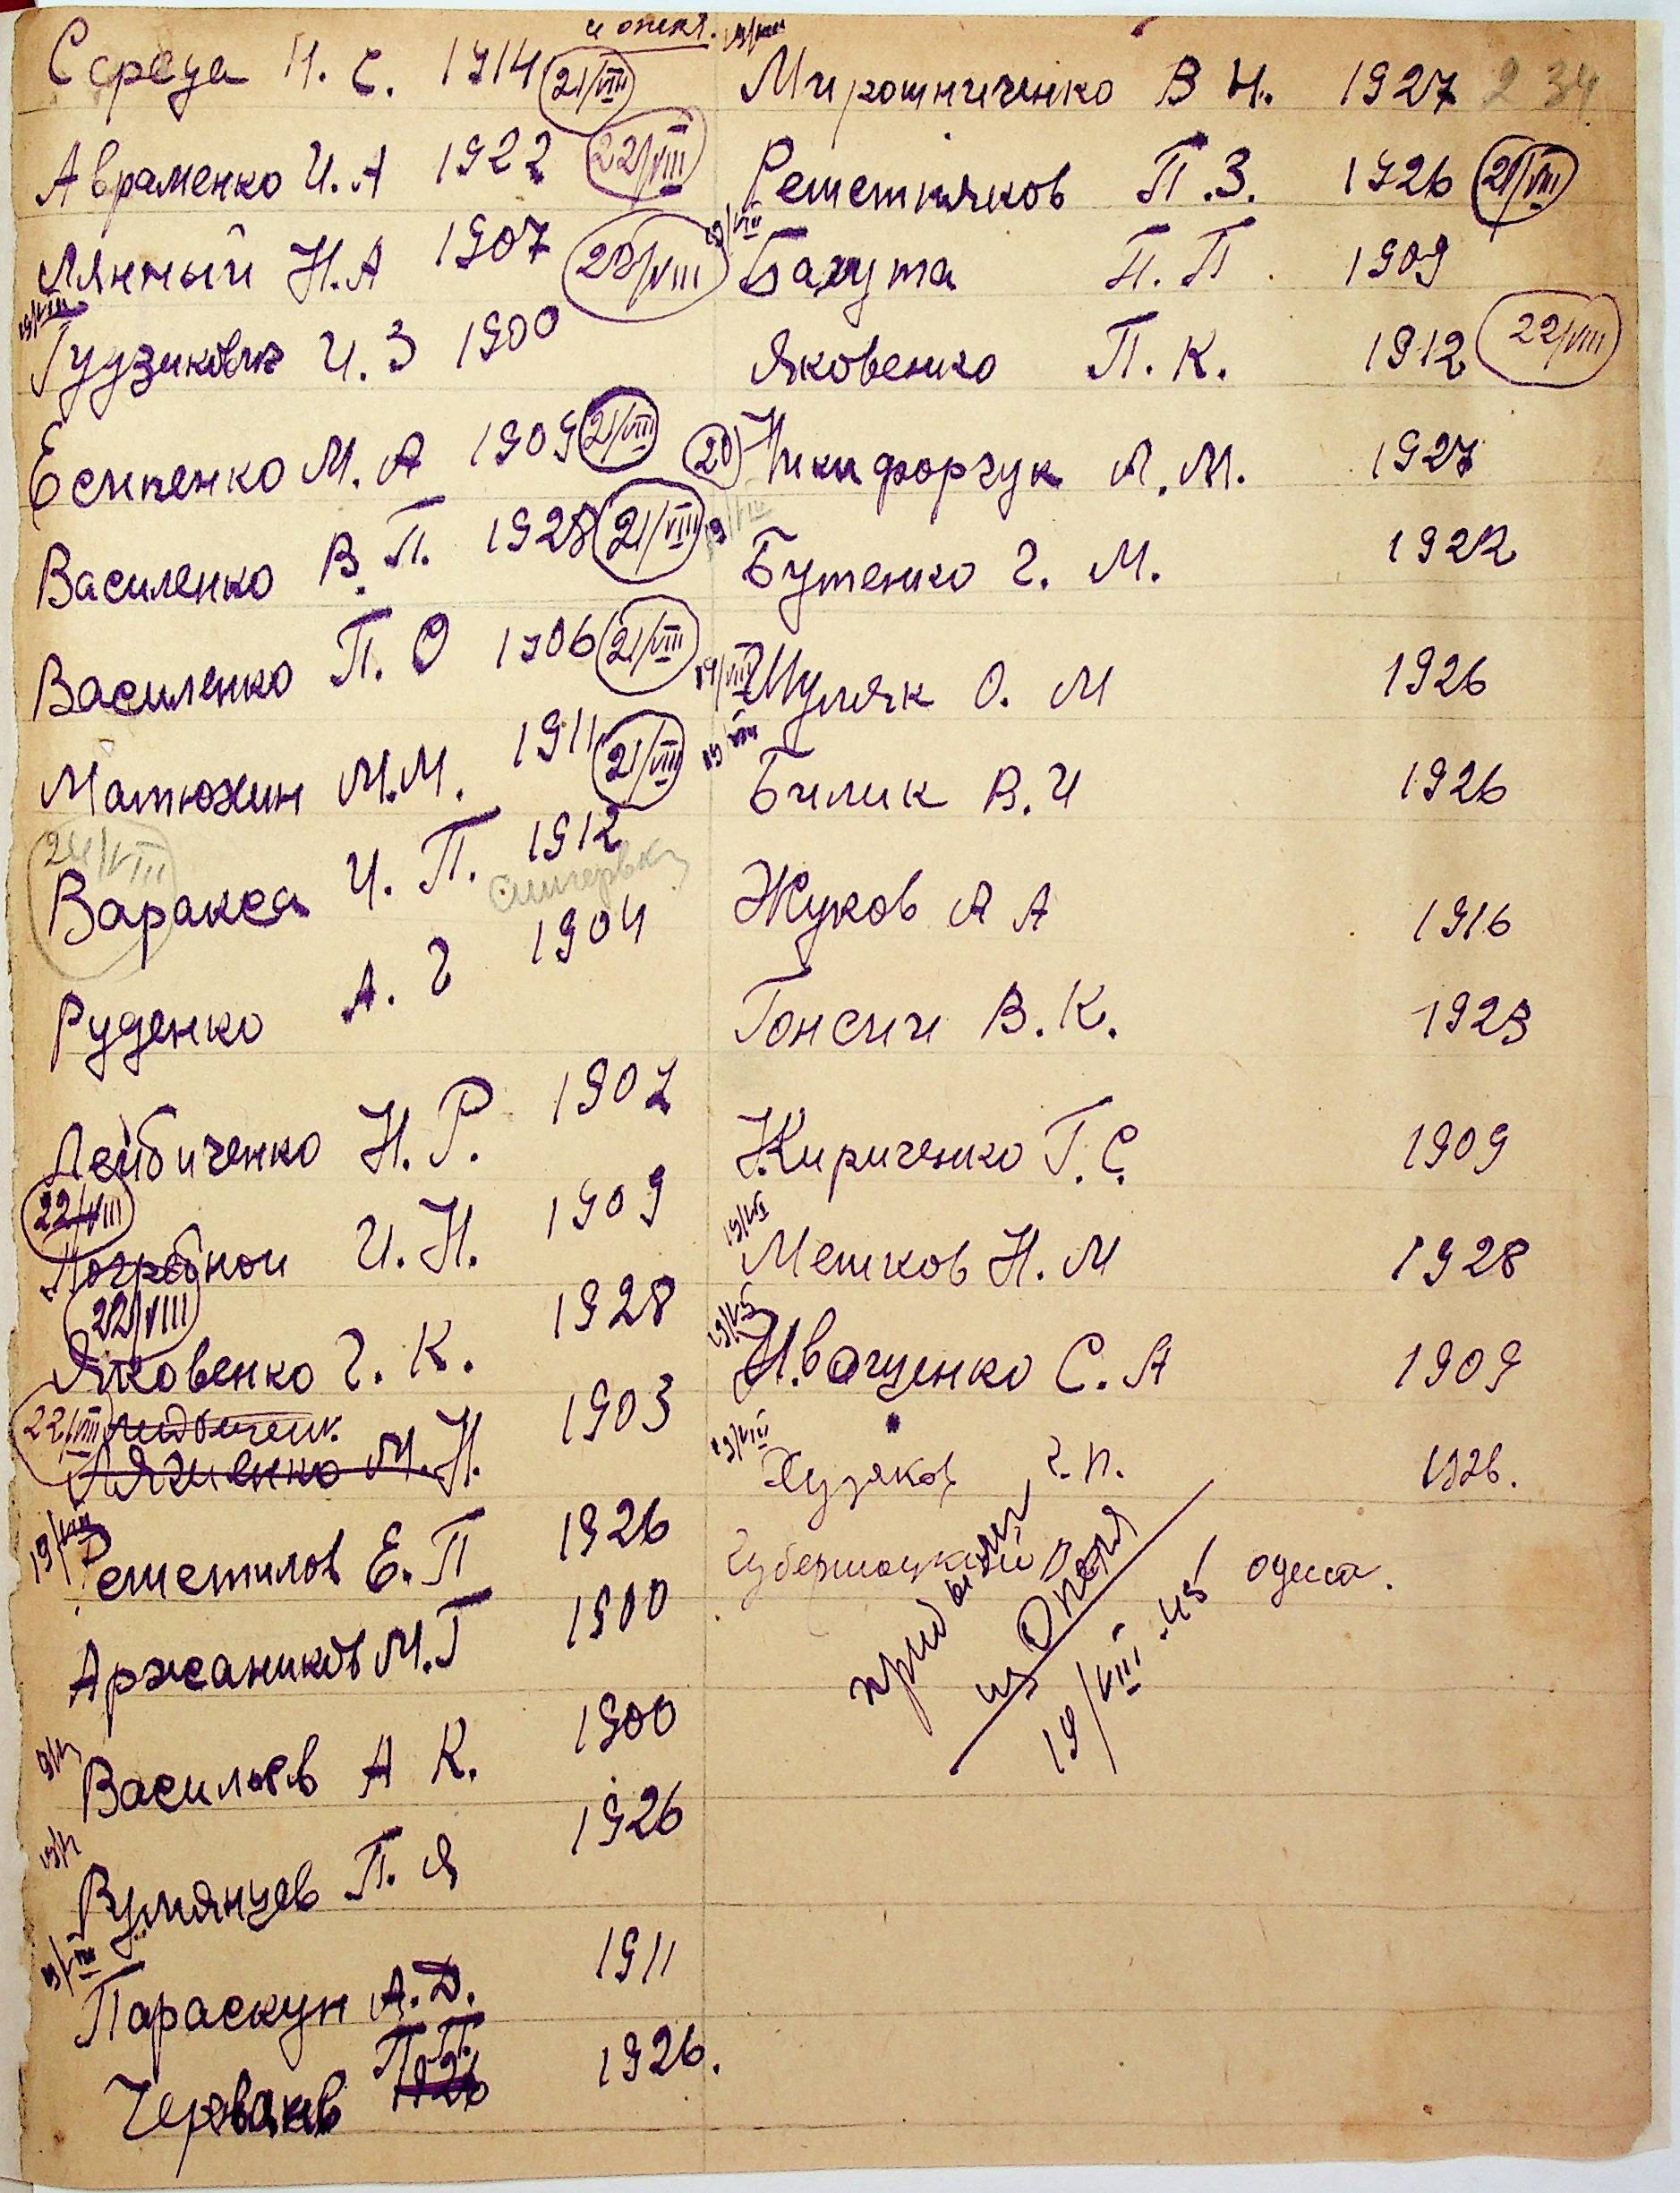 19/VIII
Середа И. С. 1914 21/VIII
Авраменко И. А 1922 22/VIII
Лянный Н. А 1907 20/VIII
19/VIII
Гудзикович И. З 1900
Есипенко М. А 1909 21/VIII
Василенко В. П. 1928 21/VIII
Василенко П. О 1906 21/VIII
Матюхин М. М. 1911 21/VIII
24/VIII
Варакса И. П. 1912
Руденко А. Г 1904
Лейбиченко Н. Р. 1907
22/VIII
Погребной И. Н. 1909
22/VIII
Яковенко Г. К. 1928
22/VIII
М. Н. 1903
19/VIII
Решетилов Е. П 1926
Аржаников М. Г 1900
Васильев А К. 1900
Румянцев П. Я 1926
Параскун А. Д. 1911
П. П.
Черваков 1926.
Мирошниченко В Н. 1927 234
Решетняков П. З. 1926 21/VIII
19/VIII
Бахута П. П. 1909
Яковенко П. К. 1912 22/VIII
20 Никифорчук А. М. 1927
19/VIII
Бутенко Г. М. 1922
19/VIII
Шуляк О. М 1926
19/VIII
Билик В. И 1926
Жуков А А 1916
Гонсич В. К. 1923
Кириченко Г. С. 1909
Мешков Н. М 1928
Иващенко С. А 1909
19/VIII
Худяков Г. П. 1926.
одесса.
прибыли
из Опеля
19/VIII.45